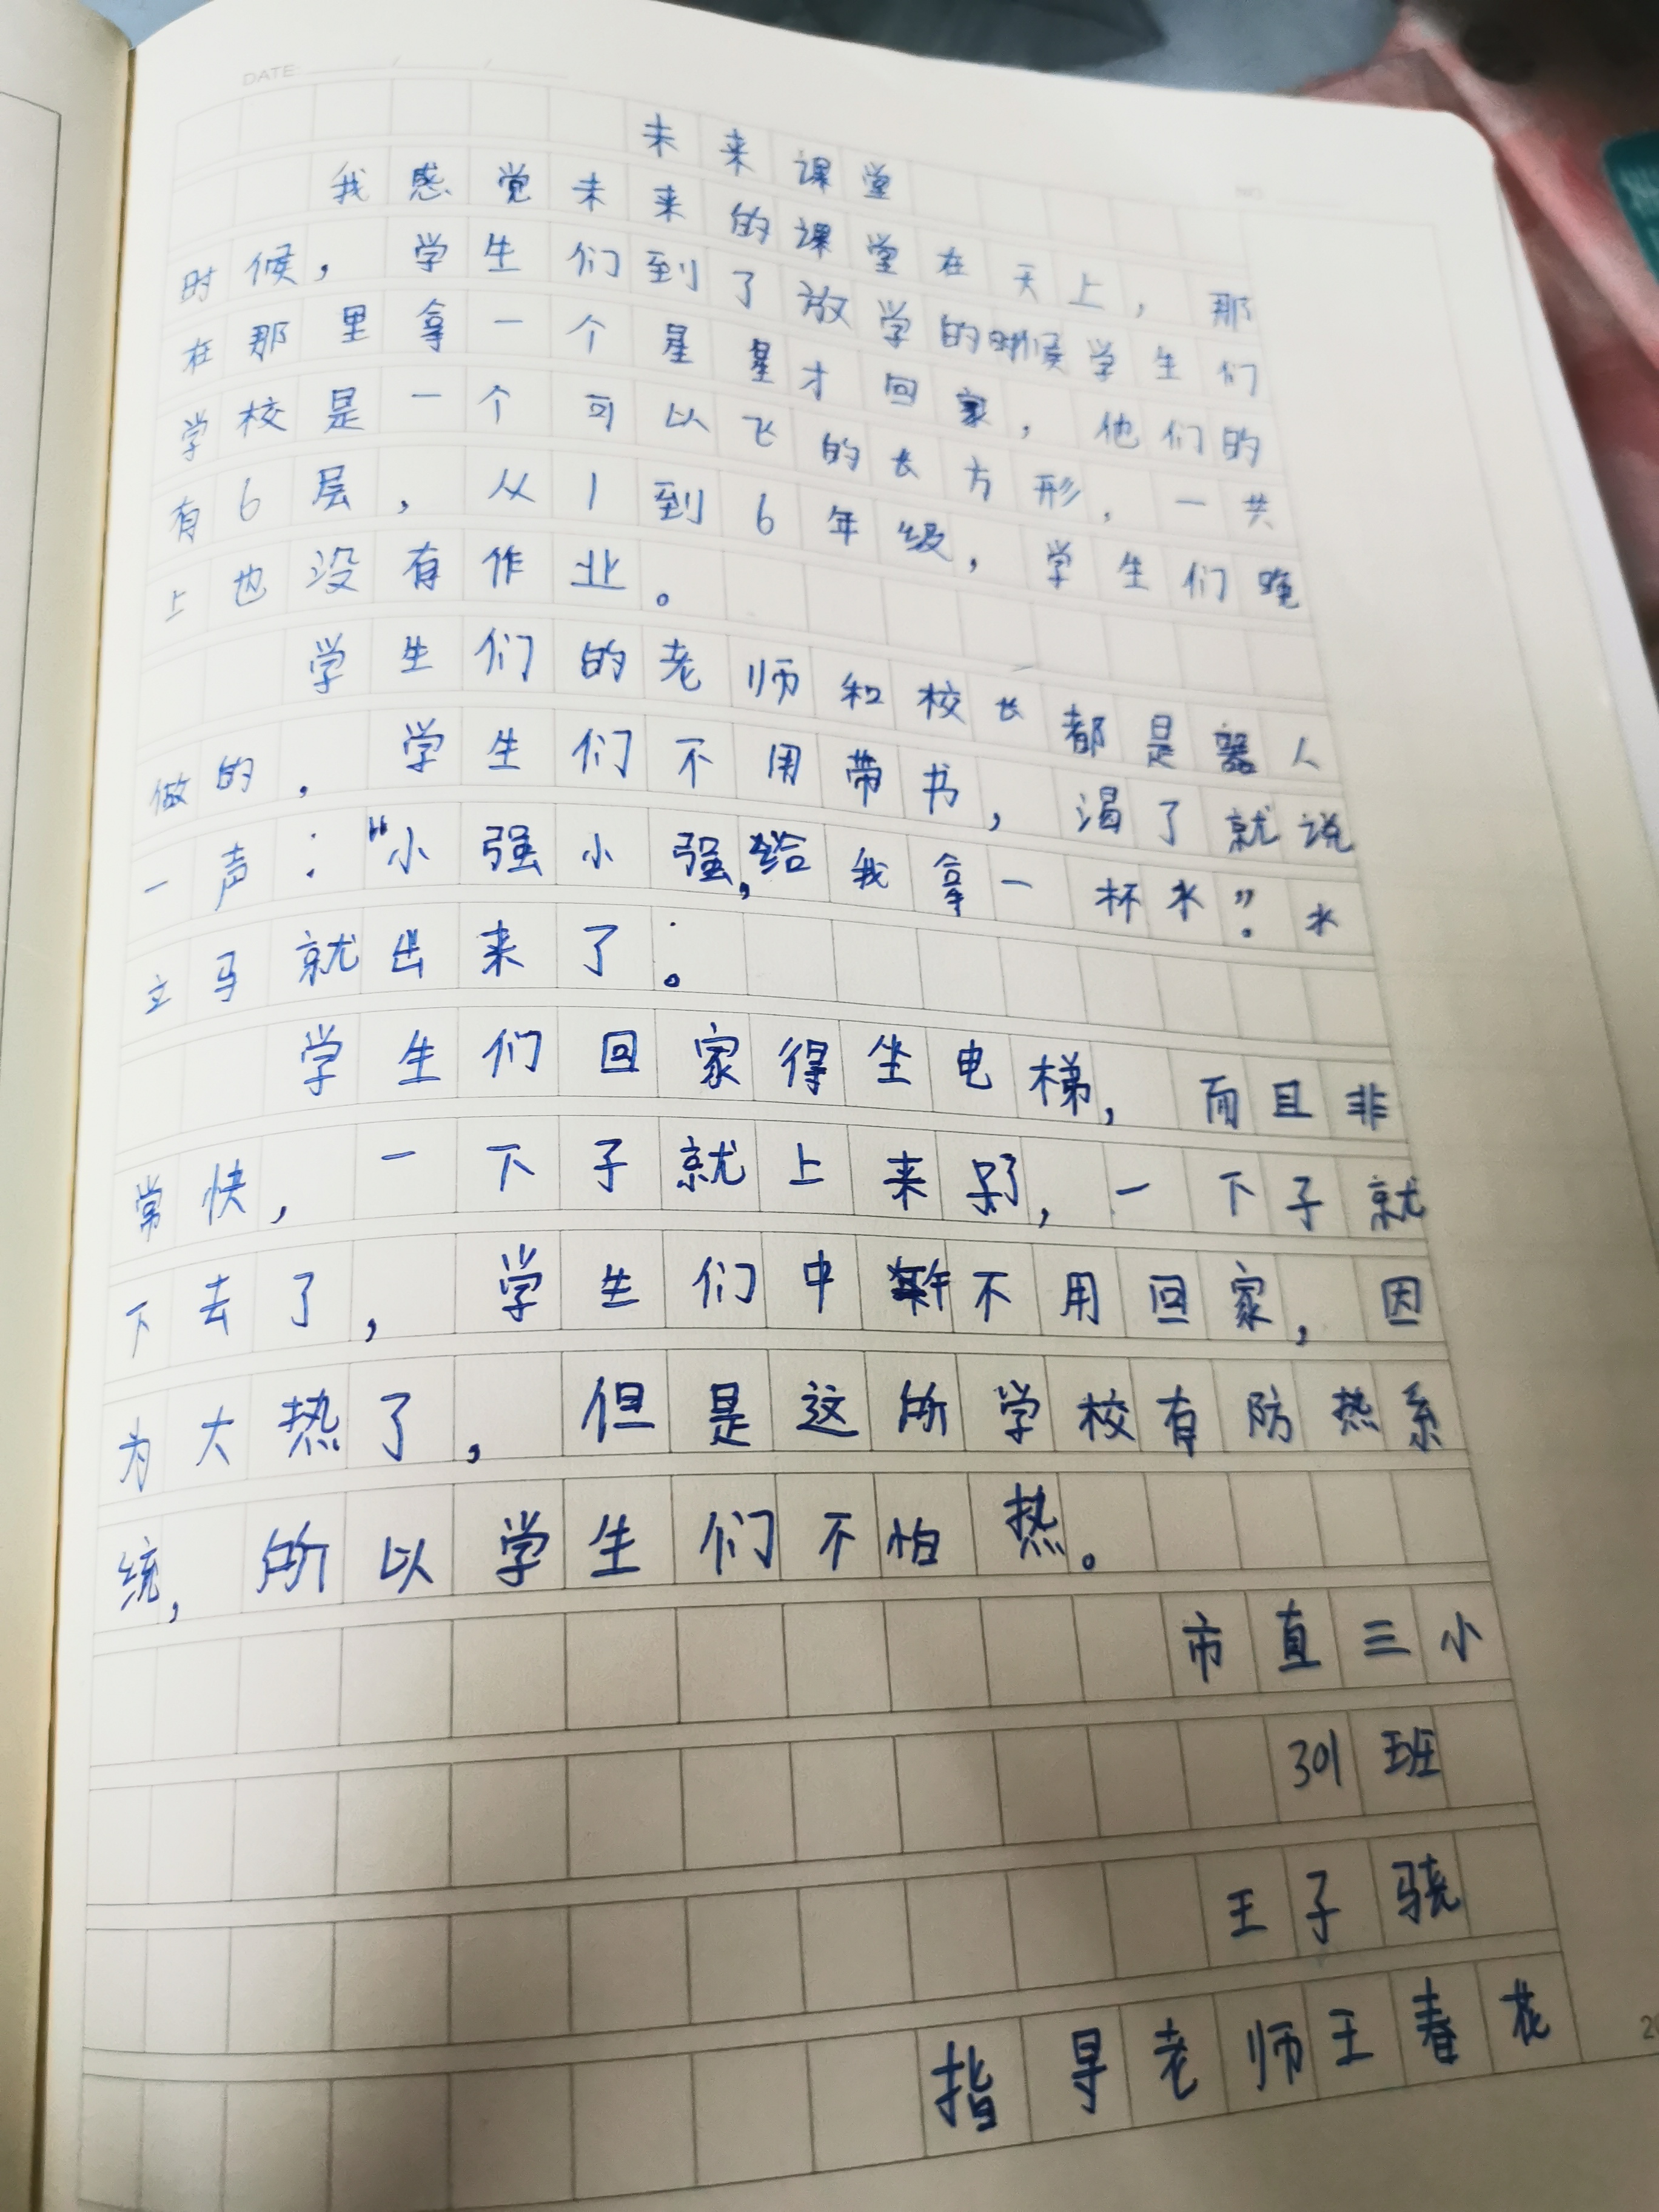 DATE
NO
未来课堂
我感觉未来的课堂在天上，那
时候，学生们到了放学的时候学生们
在那里拿一个星星才回家，他们的
学校是一个可以飞的长方形，一共
有6层，从1到6年级，学生们晚
上也没有作业。
学生们的老师和校长都是器人
做的，学生们不用带书，渴了就说
一声：“小强小强，给我拿一杯水”。水
立马就出来了。
学生们回家得坐电梯，而且非
常快，一下子就上来了，一下子就
下去了，学生们中午不用回家，因
为大热了，但是这所学校有防热系
统，所以学生们不怕热。
市直三小
301班
王子骁
指早老师王春花